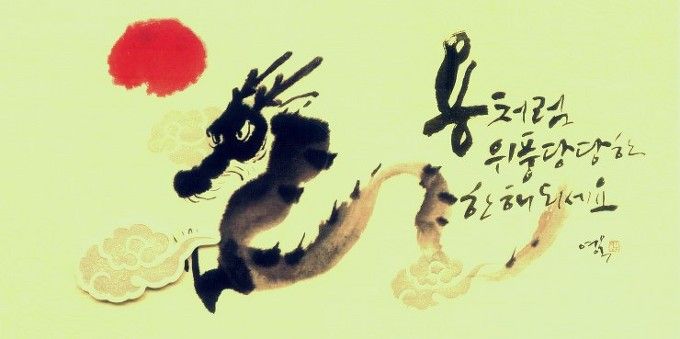 용처럼
위풍당당한
한해되세요
영묵